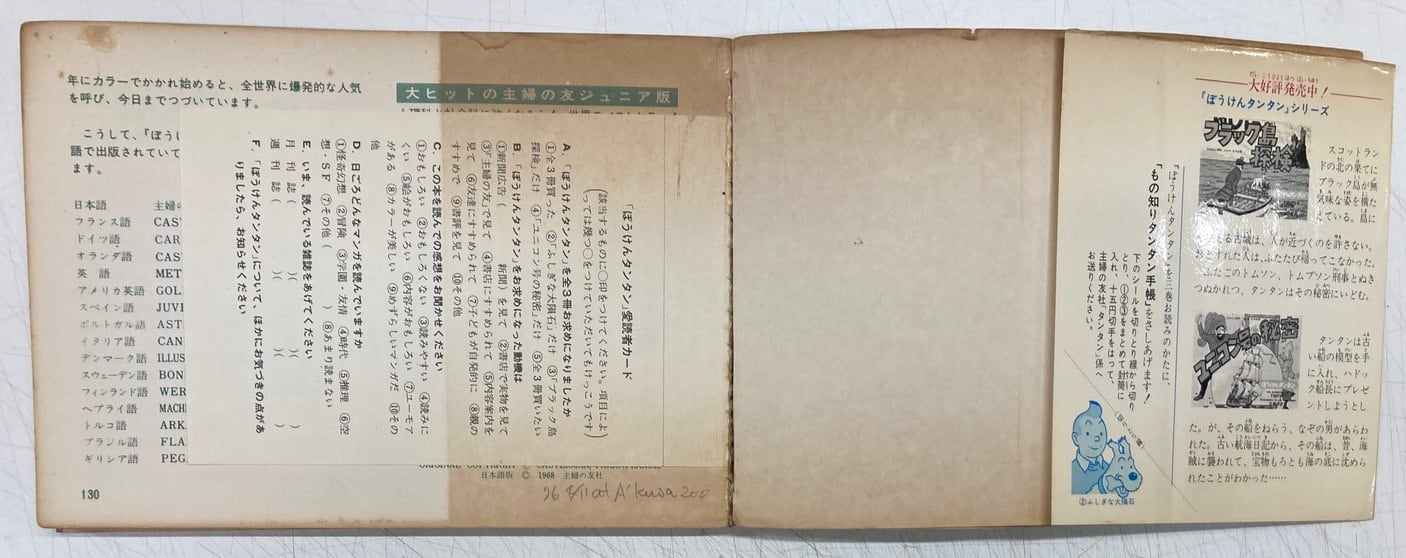 年にカラーでかかれ始めると、全世界に爆発的な人気
を呼び、今日までつづいています。
こうして、『ぼう
語で出版されていて
ます。
日本語 主婦の
フランス語 CAST
ドイツ語 CAR
オランダ語 CAS
英 語 MET
アメリカ英語 GOL
スペイン語 JUV
ポルトガル語 AST
イタリア語 CAN
デンマーク語 ILLUS
スウェーデン語 BON
フィンランド語 WER
ヘブライ語 MACH
トルコ語 ARK
ブラジル語 FLA
ギリシア語 PEG
130
大ヒットの主婦の友ジュニア版
「ぼうけんタンタン」愛読者カード
(該当するものに○印をつけてください。項目によ
っては幾つ○をつけていただいてもけっこうです)
A.「ぼうけんタンタン」を全3冊お求めになりましたか
①全3冊買った ②「ふしぎな大隕石」だけ ③「ブラック島
探検」だけ ④「ユニコン号の秘密」だけ ⑤全3冊買いたい
B.「ぼうけんタンタン」をお求めになった動機は
①新聞広告( 新聞)を見て ②書店で実物を見て
③「主婦の友」で見て ④書店にすすめられて ⑤内容案内を
見て ⑥友達にすすめられて ⑦子どもが自発的に ⑧親の
すすめで ⑨書評を見て ⑩その他
C.この本を読んでの感想をお聞かせください
①おもしろい ②おもしろくない ③読みやすい ④読みに
くい ⑤絵がおもしろい ⑥内容がおもしろい ⑦ユーモア
がある ⑧カラーが美しい ⑨めずらしいマンガだ ⑩その
他
D.日ごろどんなマンガを読んでいますか
①怪奇幻想 ②冒険 ③学園・友情 ④時代 ⑤推理 ⑥空
想・SF ⑦その他( ) ⑧あまり読まない
E.いま、読んでいる雑誌をあげてください
月刊誌( )( )( )
週刊誌( )( )( )
F.「ぼうけんタンタン」について、ほかにお気づきの点があ
りましたら、お知らせください
日本語版 © 1968 主婦の友社
大好評発売中!
『ぼうけんタンタン』シリーズ
ブラック島
探検
スコットラン
ドの北の果てに
ブラック島が無
気味な姿を横た
えている。島に
える古城は、人が近づくのを許さない。
おとずれた人は、ふたたび帰ってこなかった。
ふたごのトムソン、トムプソン刑事とぬき
つぬかれつ、タンタンはその秘密にいどむ。
ユニコン号の秘密
ぼうけんタンタン
タンタンは古
い船の模型を手
に入れ、ハドッ
ク船長にプレゼ
ントしようとし
た。が、その船をねらう、なぞの男があらわ
れた。古い航海日記から、その船は、昔、海
賊に襲われて、宝物もろとも海の底に沈めら
れたことがわかった……
『ぼうけんタンタン』を三巻お読みのかたに、
「もの知りタンタン手帳」をさしあげます!
下のシールを切りとり線から切り
とり、①②③をまとめて封筒に
入れ、十五円切手をはって、
主婦の友社「タンタン」係へ
お送りください。
②ふしぎな大隕石